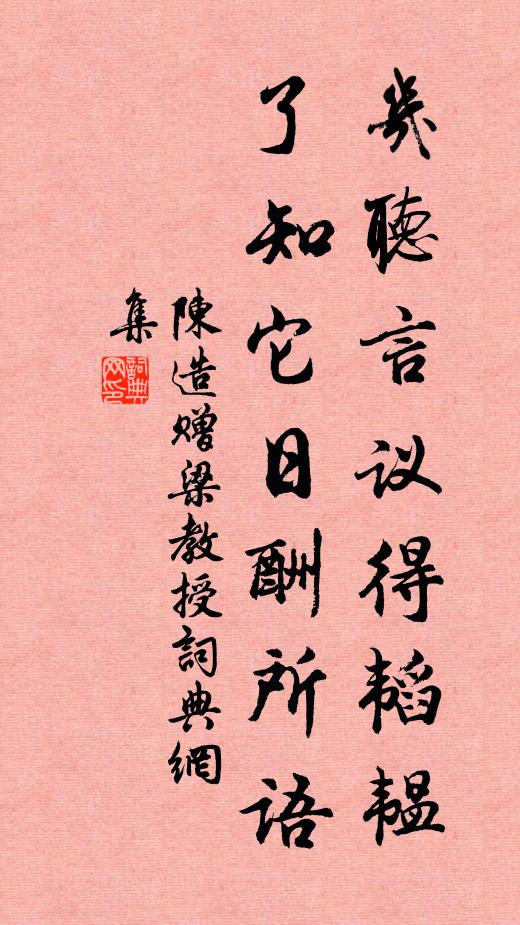 幾聽言议得韬韫
了知它日酬所语
陳造赠梁教授詞典網
集
詞典网印